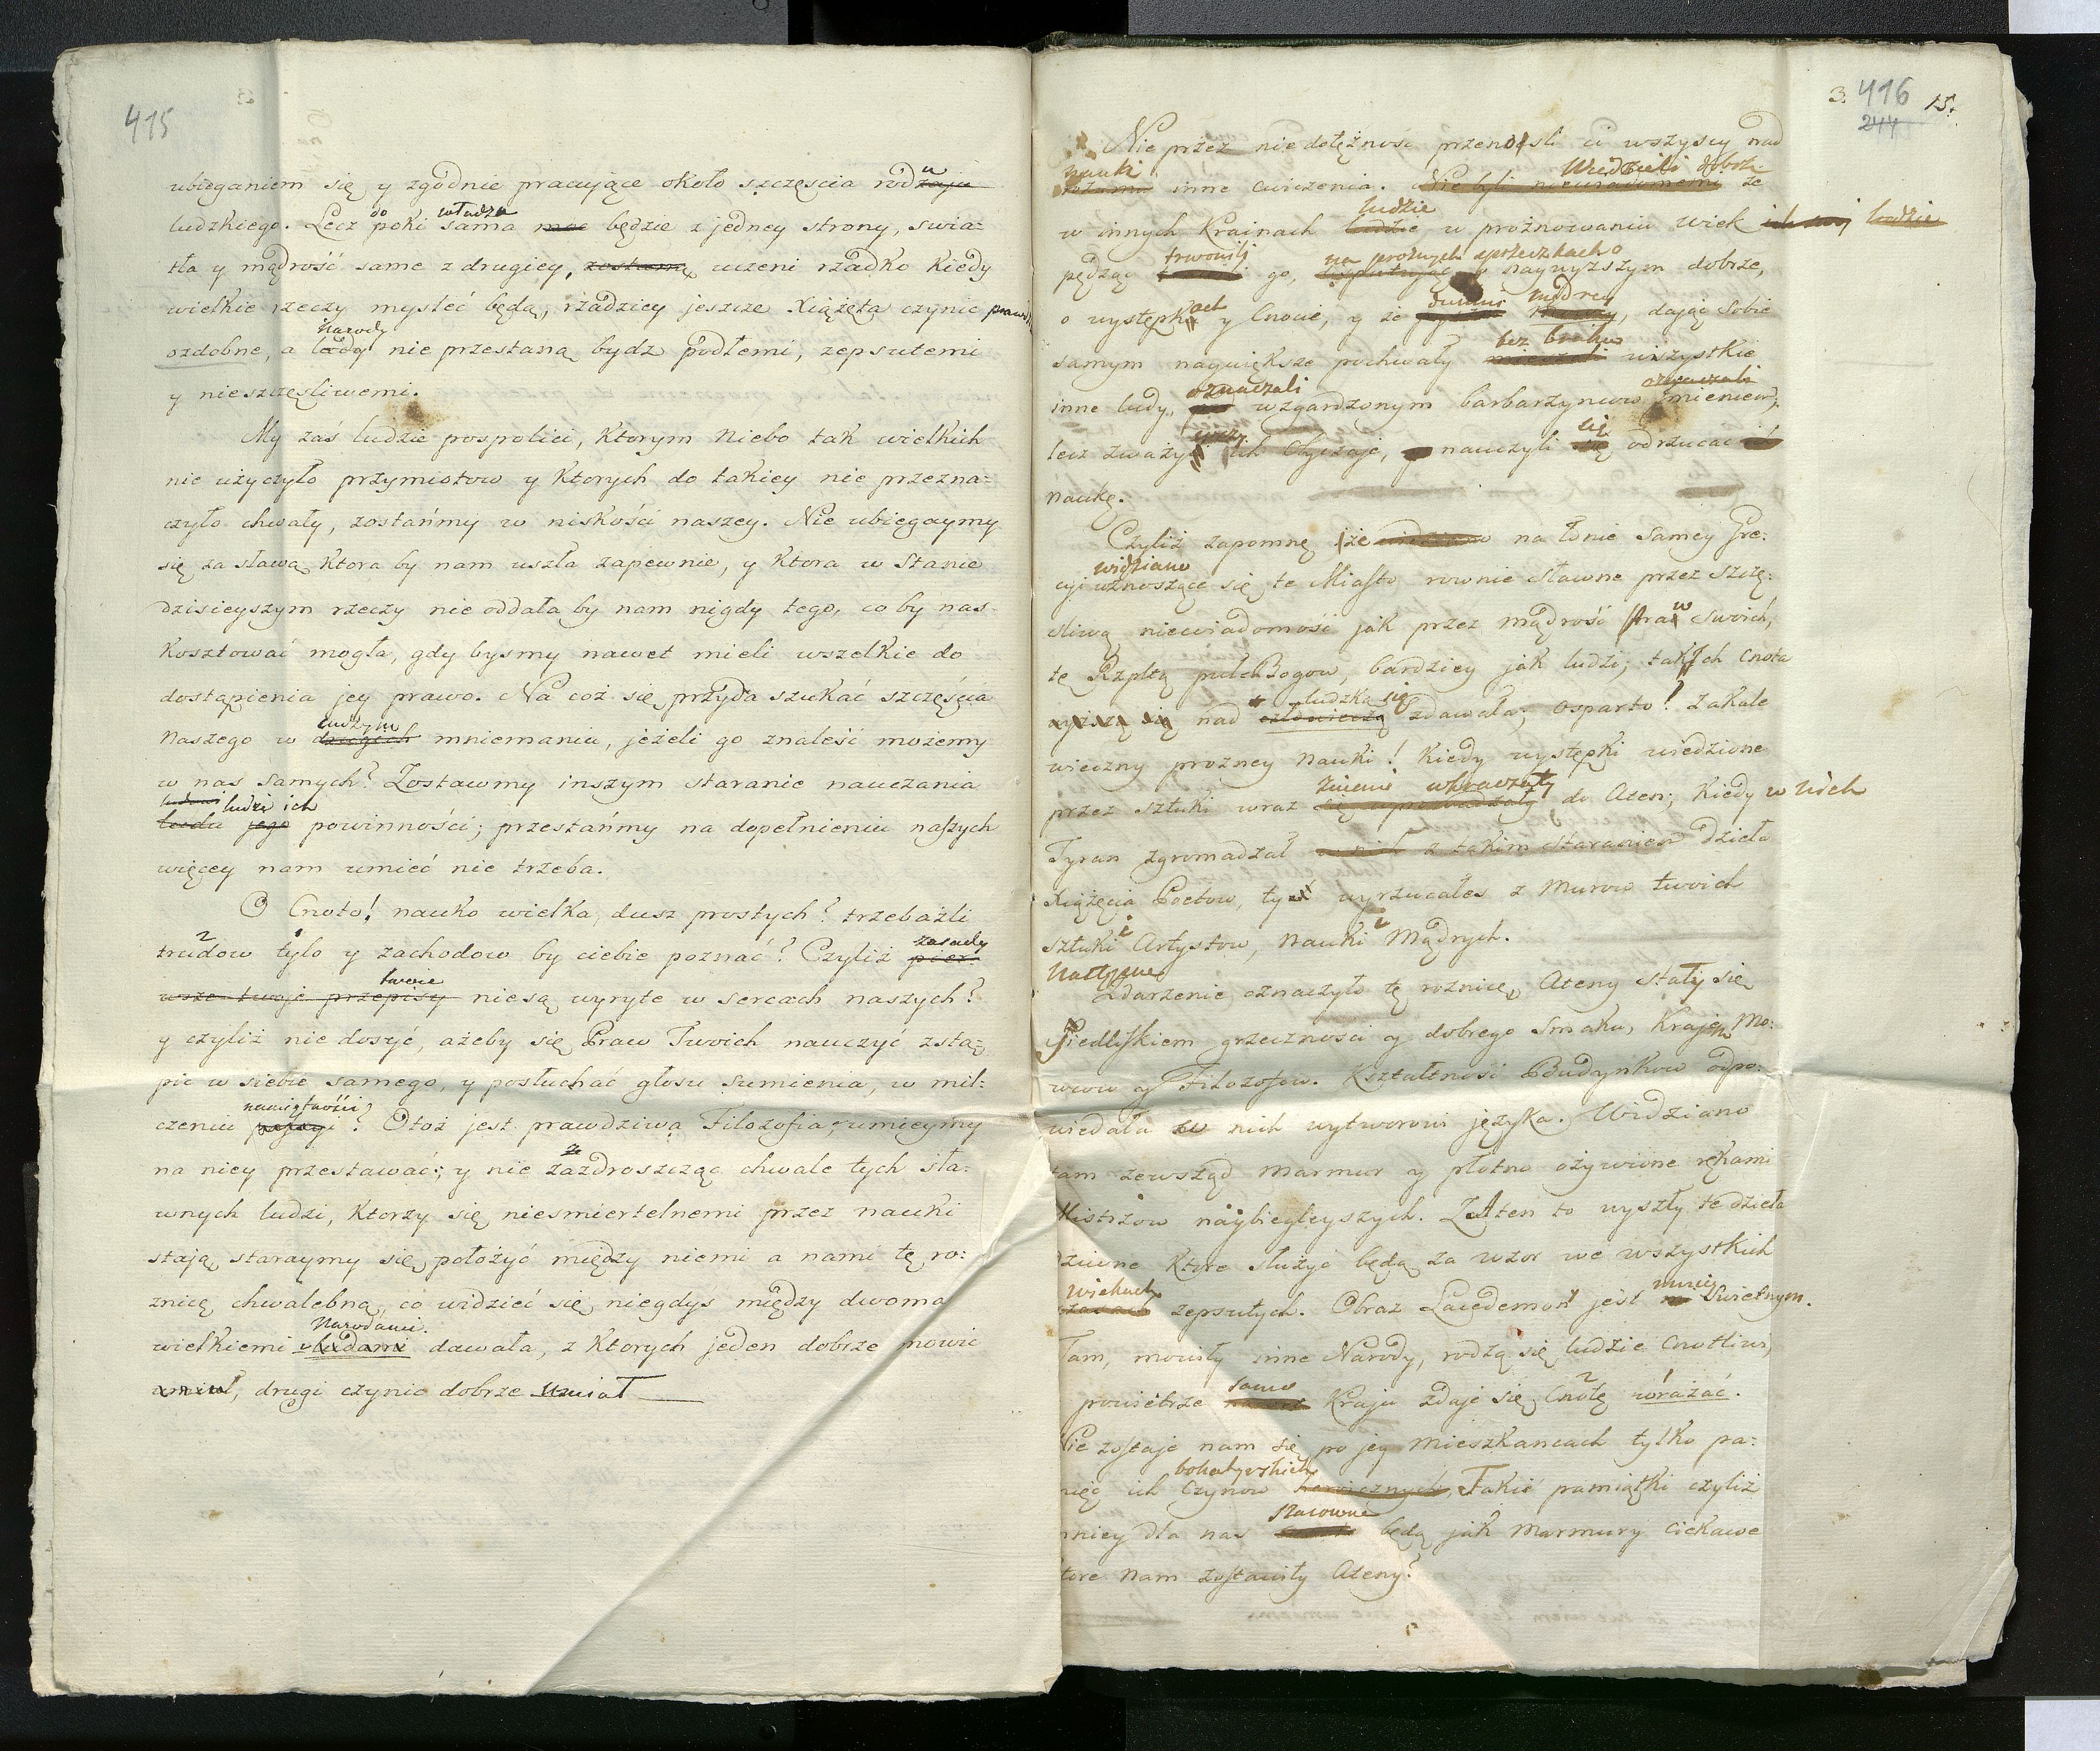 415
ubieganiem się y zgodnie pracujące około szczęscia rodzaju u
ludzkiego. Lecz do poki sama moc władza będzie z jedney strony, swia=
tła y mądrość same z drugiey, zostaną uczeni rzadko kiedy
wielkie rzeczy mysleć będą, rzadziey jeszcze Xiążęta czynić
ozdobne, a ludy Narody nie przestaną bydz podłemi, zepsutemi
y nieszczęsliwemi.
My zaś ludzie pospolici, Ktorym Niebo tak wielkich
nie użyczyło przymiotow y Ktorych do takiey nie przezna=
czyło chwały, zostańmy w niskości naszey. Nie ubiegaymy
się za sławą Ktora by nam uszła zapewnie, y Ktora w Stanie
dzisieyszym rzeczy nie oddała by nam nigdy tego, co by nas
Kosztować mogła, gdy bysmy nawet mieli wszelkie do
dostąpienia jey prawo. Na coż się przyda szukać szczęścia
Naszego w drugich cudzym mniemaniu, jeżeli go znaleść możemy
w nas samych? Zostawmy inszym staranie nauczania
ludowi ludzi ich
ludu jego powinności; przestańmy na dopełnieniu naszych
więcey nam umieć nie trzeba.
O Cnoto! nauko wielka, dusz prostych? trzebażli
trudow tylo y zachodow by ciebie poznać? Czyliż pier= zasady
wsze twoje przepisy twoie niesą wyryte w sercach naszych?
y czyliż nie dosyć, ażeby się Praw Twoich nauczyć zstą=
pić w siebie samego, y posłuchać głosu sumienia, w mil=
czeniu passyi namiętności? Otoż jest prawdziwa Filozofia, umieymy
na niey przestawać; y nie zazdroszcząc chwale tych sła=
wnych ludzi, Ktorzy się niesmiertelnemi przez nauki
stają, staraymy się położyć między niemi a nami tę ro=
znicę chwalebną, co widzieć się niegdys między dwoma
wielkiemi ludami Narodami dawała, z Ktorych jeden dobrze mowić
umiał, drugi czynić dobrze Umiał
3. 416 15.
244
Nie przez niedołężność przenosli ci wszyscy nad
nauki inne cwiczenia. Nie byli niewiadomemi Wiedzieli dobrze że
w innych Krainach ludzie ludzie w prożnowaniu wiek ich swoj ludzie
pędząc trwonili go, dysputując na prożnych sprzeczkach o naywyższym dobrze,
o występkach y Cnocie, y że dumni mędrcy, dając Sobie
samym naywiększe pochwały mieszali bez braku wszystkie
inne ludy, pod oznaczali wzgardzonym barbarzyncow imieniem, oznaczali
lecz zważyli ich Obyczaje, y nauczyli się się odrzucać ich
naukę.
Czyliż zapomnę że widziano na łonie samey Gre=
cyi widziano wznoszące się te Miasto rownie sławne przez szczę=
sliwą niewiadomość jak przez mądrość Praw swoich,
tę Rzpltę puł Bogow, bardziey jak ludzi; tak ich Cnota
wyższą się nad człowieczą ludzką się zdawała; O Sparto! zakale
wieczny prozney Nauki! Kiedy występki wiedzione
przez sztuki wraz się wprowadzały z niemi wkraczały do Aten; Kiedy w nich
Tyran zgromadzał w nich z takim staraniem dzieła
Xiążęcia Poetow, ty wyrzucałes z Murow twoich
sztuki i Artystow, nauki i Mądrych.
Następne
Zdarzenie oznaczyło tę roznicę, Ateny stały się
Siedliskiem grzeczności y dobrego Smaku, Krajem Mo=
wcow y Filozofow. Kształtność Budynkow odpo=
wiedała w nich wytworowi języka. Widziano
tam zewsząd marmur y płotno ożywione rękami
Mistrzow naybiegleyszych. Z Aten to wyszły te dzieła
dziwne Ktore służyć będą za wzor we wszystkich
wiekach zepsutych. Obraz Lacedemon jest mniey Swietnym.
Tam, mowiły inne Narody, rodzą się ludzie Cnotliwi,
powietrze nawet samo Kraju zdaje się Cnotę wrażać.
Nie zostaje nam się po jey Mieszkancach tylko pa=
mięć ich Czynow heroicznych bohatyrskich. Takie pamiątki czyliż
mniey dla nas szacowne będą jak Marmury Ciekawe
Ktore Nam zostawiły Ateny?